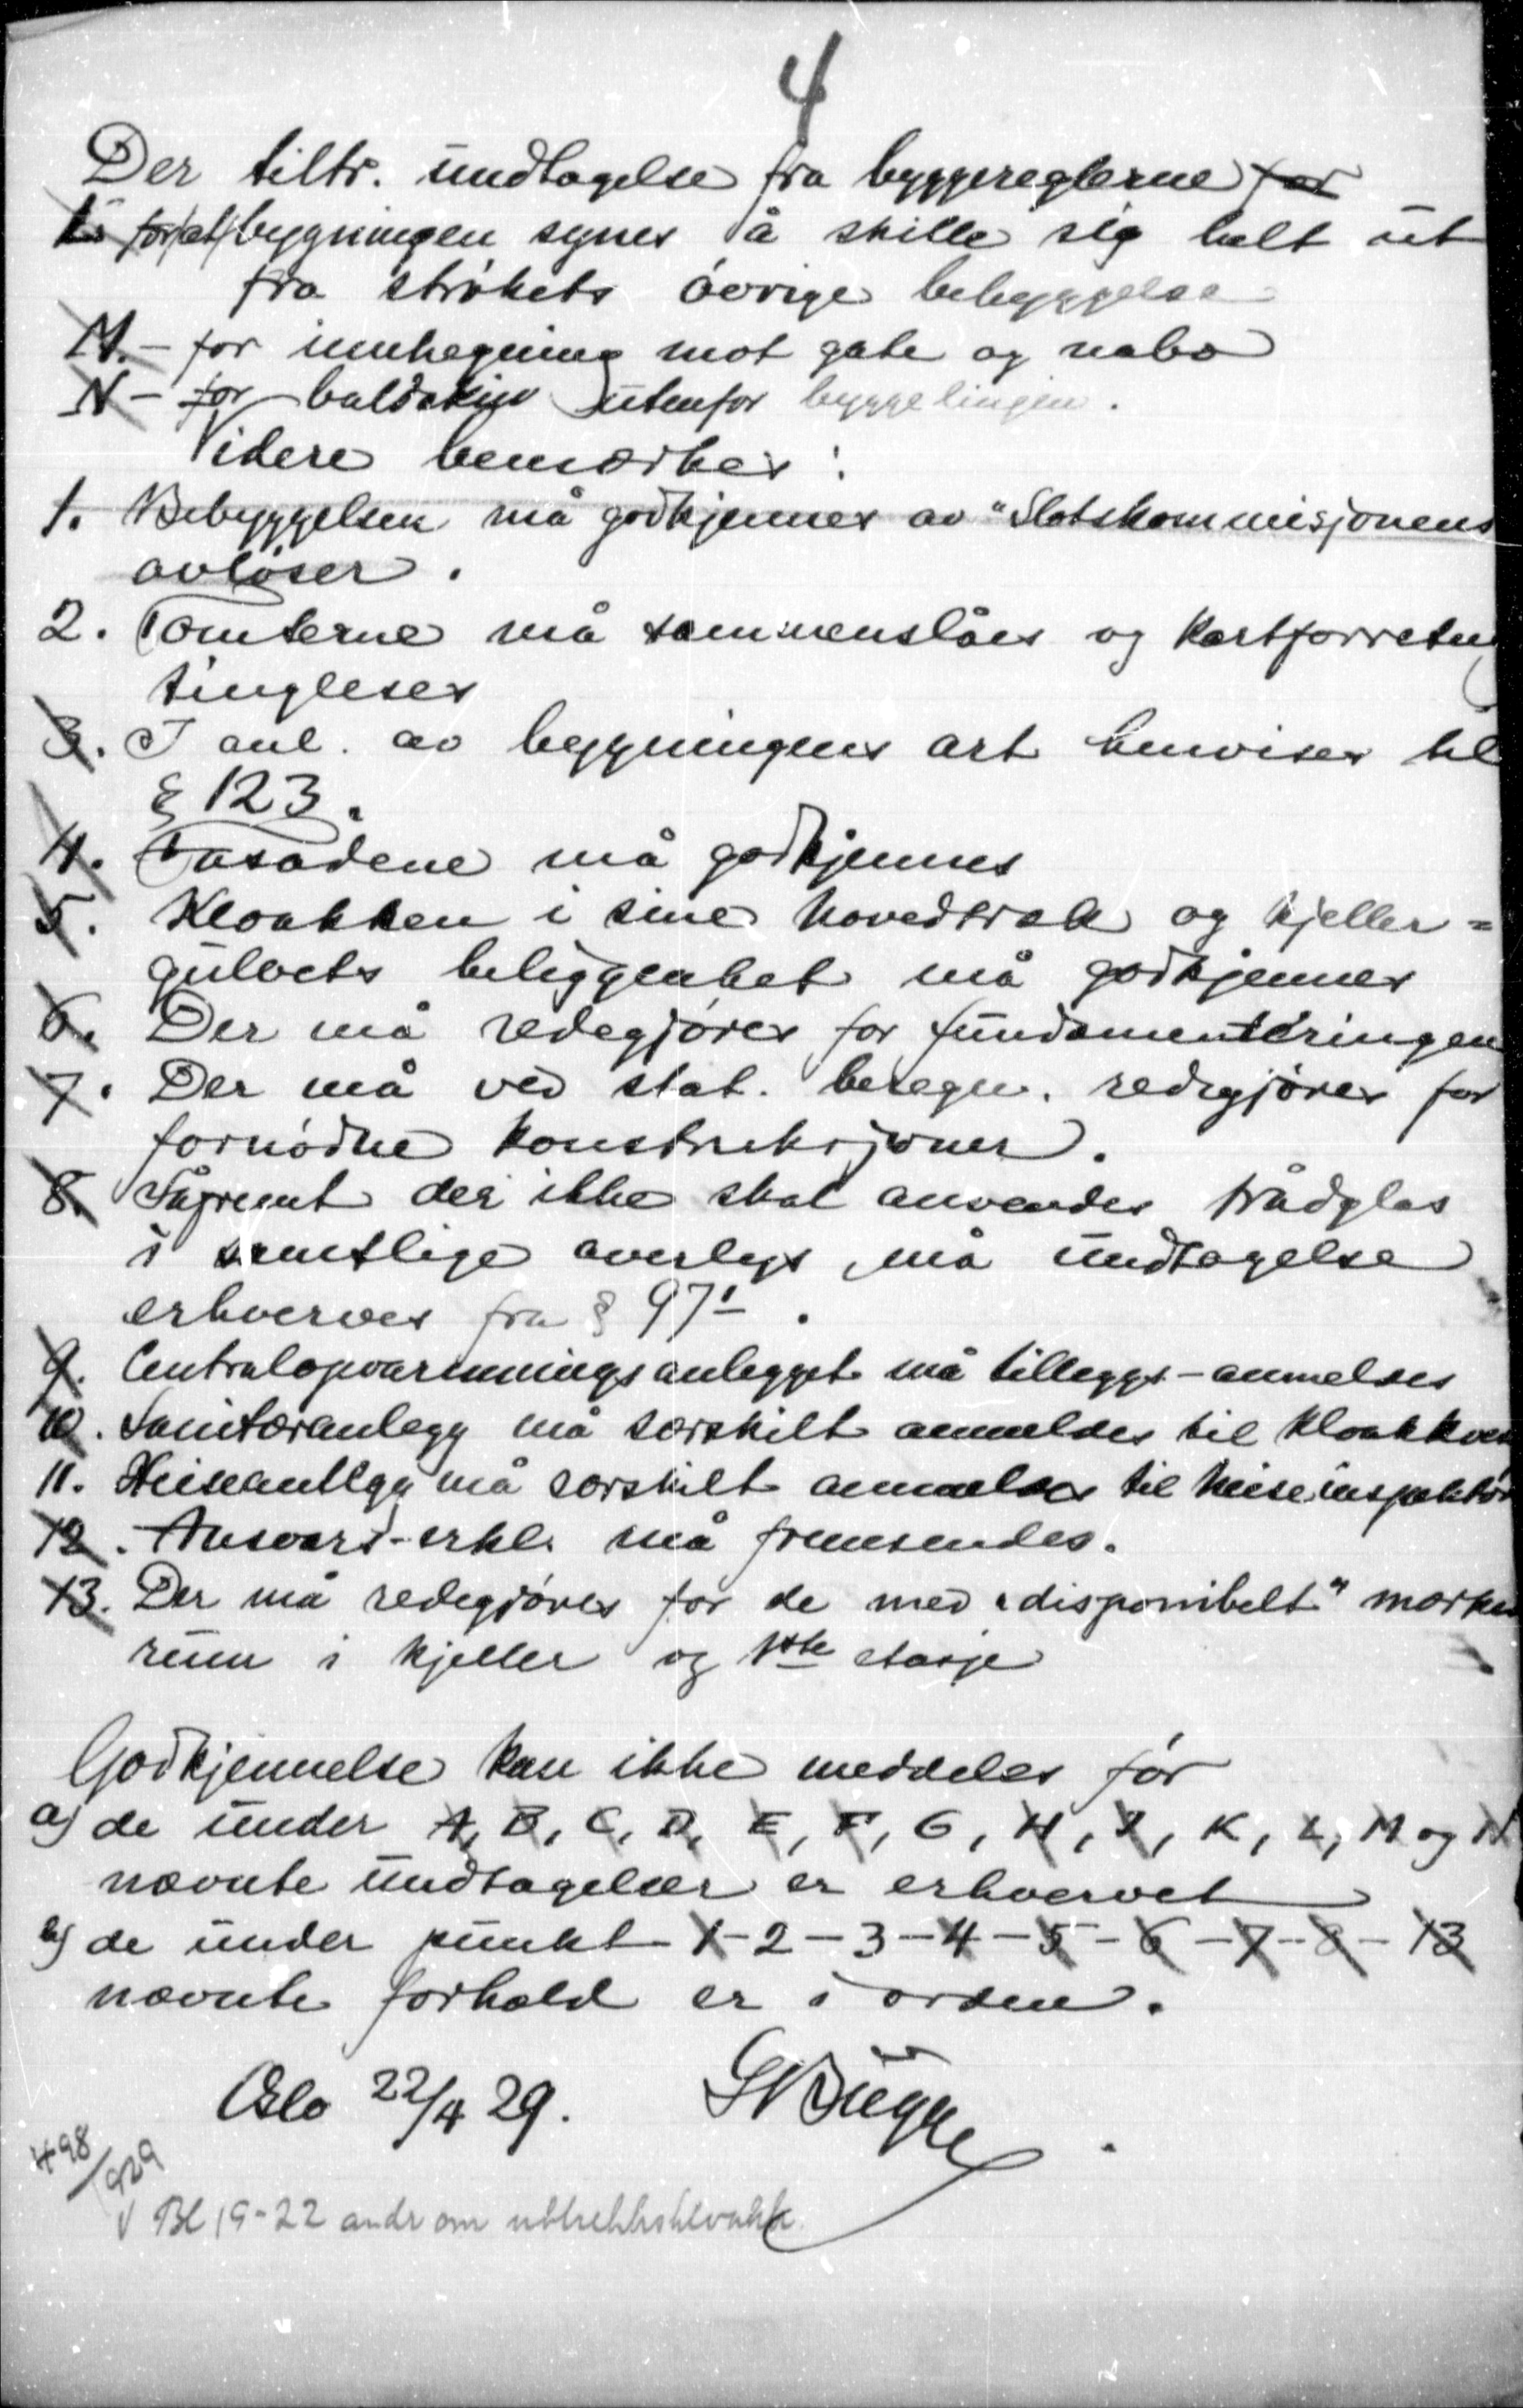 4
Der tiltr. undtagelse fra byggereglerne for
L - for at bygningen synes å skille sig helt ut
fra strøkets øvrige bebyggelse
M. - for innhegning mot gate og nabo
N - for baldakin utenfor byggelinjen.
Videre bemerkes:
1. Bebyggelsen må godkjennes av "Slotskommisjonens
avløser.
2. Tomterne må sammenslåes og kartforretn
tingleses
3. I anl. av bygningens art henvises til
§ 123.
4. Fasadene må godkjennes
5. Kloakken i sine hovedtræk og kjeller=
gulvets beliggenhet må godkjennes
6. Der må redegjøres for fundamenteringen
7. Der må ved stat. beregn. redegjøres for
fornødne konstruksjoner.
8. Såfremt der ikke skal anvendes trådglas
i samtlige overlys, må undtagelse
erhverves fra § 97¹.
9. Centralopvarmningsanlegget må tilleggs-anmeldes
10. Sanitæranlegg må særskilt anmeldes til kloakkves
11. Heiseanlegg må særskilt anmeldes til heiseinspektør
12. Ansvars-erkl. må fremsendes.
13. Der må redegjøres for de med "disponibelt" merke
rum i kjeller og 1ste etasje
Godkjennelse kan ikke meddeles før
a) de under A, B, C, D, E, F, G, H, I, K, L, M og N
nævnte undtagelser er erhvervet
b) de under punkt 1-2-3-4-5-6-7-8-13
nævnte forhold er i orden.
Oslo 22/4 29. SBugge
498/929
V Bl 19-22 andr om